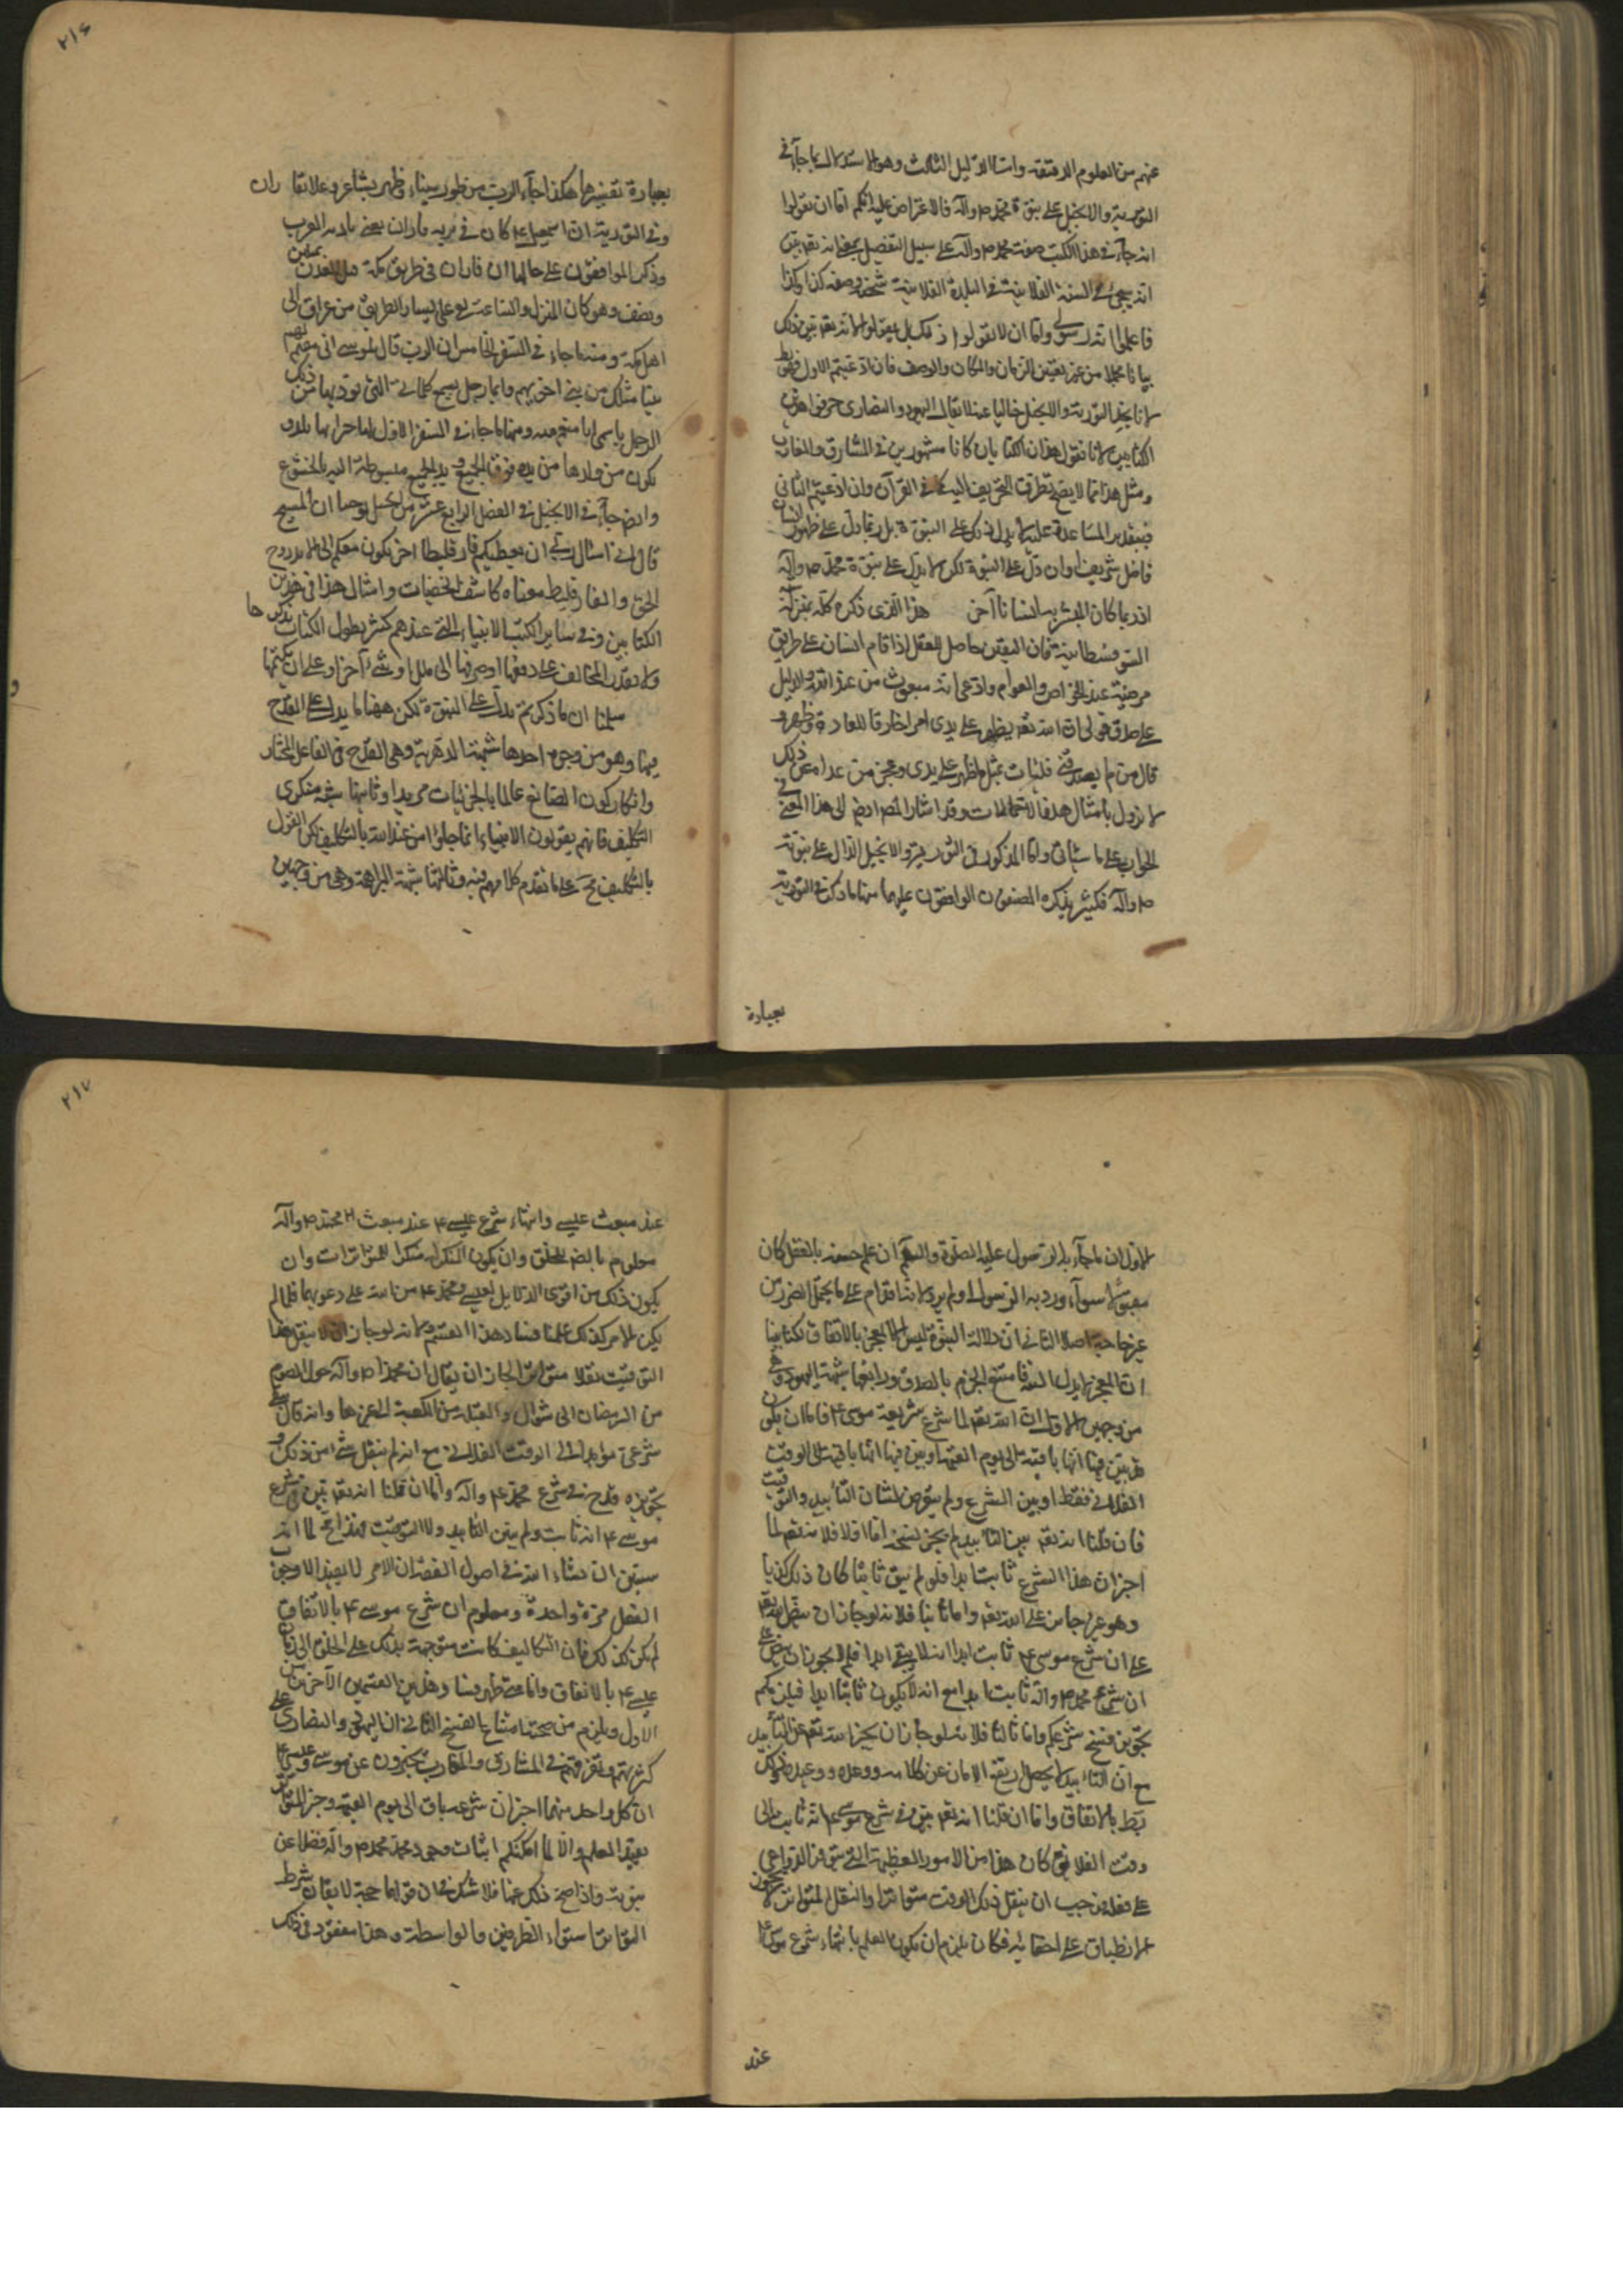 عنهم من العلوم الدقيقة واما الدليل الثالث وهو الاستدلال بما جآء في
التورية والانجيل على نبوة محمد ص وآله فالاعتراض عليه انكم اما ان تقولوا
انه جآء في هذا الكتب صفة محمد ص وآله على سبيل التفصيل بمعنى انه تعالى بين
انه يجئ في السنة الفلانية في البلدة الفلانية شخص وصفه كذا وكذا
فاعلموا انه رسولي واما ان لا تقولوا ذلك بل يقولوا انه تعالى بين ذلك
بيانا مجملا من غير تعيين الزمان والمكان والوصف فان ادعيتم الاول فهو بط
لانا نجد التورية والانجيل خاليا عنه لا يقال اليهود والنصارى حرفوا هذين
الكتابين لانا نقول هذان الكتابان كانا مشهورين في المشارق والمغارب
ومثل هذا مما لا يصح تطرق التحريف اليه كما في القرآن وان ادعيتم الثاني
فبتقدير المساعدة عليه لا يدل ذلك على النبوة بل ربما دل على ظهور انسان
فاضل شريف او ان دل على النبوة لكن لا يدل على نبوة محمد ص وآله
اذ ربما كان المبشر به انسانا آخر هذا الذي ذكره كله بمنزلة
السوفسطائية فان اليقين حاصل للعقل اذا قام انسان على طريق
مرضية عند الخواص والعوام وادعى انه مبعوث من عند الله والدليل
على صدق قولي ان الله تعالى يظهر على يدي امرا خارقا للعادة وظهر و
قال من لم يصدقني فليات بمثل ما ظهر على يدي وعجز من عداه عن ذلك
لا يزول بامثال هذه الاحتمالات وقد اشار المصـ ايضا الى هذا المعنى في
الجواب على ما سياتي واما المذكور في التورية والانجيل الدال على نبوته
ص وآله فكثير يذكره المصنفون الواقفون عليهما منها ما ذكر في التورية
بعبارة
٢١٦
بعبارة تفسيرها هكذا جآء الرب من طور سيناء وظهر بشاعر وعلا بفاران
وفي التورية ان اسمعيل ع كان في برية فاران يعني بادية العرب
وذكر الموافقون على حالها ان فاران في طريق مكة قبل العدن بميلين
ونصف وهو كان المنزل والساعة يقع على يسار الطريق من عراق الى
اهل مكة ومنها ما جاء في السفر الخامس ان الرب قال لموسى اني مقيم لهم
نبيا مثلك من بني اخوتهم وايما رجل لم يسمع كلماتي التي يؤديها عني ذلك
الرجل باسمي انا منتقم منه ومنها ما جاء في السفر الاول لهاجر انها تلد و
يكون من ولدها من يده فوق الجميع ويد الجميع مبسوطة اليه بالخشوع
وايضا جآء في الانجيل في الفصل الرابع عشر من انجيل يوحنا ان المسيح
قال اني اسال ربي ان يعطيكم فارقليطا اخر يكون معكم الى الابد روح
الحق والفارقليط معناه كاشف الخفيات وامثال هذا في هذين
الكتابين وفي ساير الكتب الانبياء التي عندهم كثير يطول الكتاب بذكرها
ولا يقدر المخالف على دفعها او صرفها الى ملك او شئ آخر او على ان يكتمها
سلمنا ان ما ذكرتم يدل على النبوة لكن ههنا ما يدل على القدح
فيها وهو من وجوه احدها شبهة الدهرية وهي القدح في الفاعل المختار
وانكار كون الصانع عالما بالجزئيات مريدا وثانيها شبه منكري
التكليف فانهم يقولون الانبياء انما جاؤا من عند الله بالتكليف لكن القول
بالتكليف مح على ما تقدم كلامهم فيه وثالثها شبهة البراهمة وهي من وجهين
الاول ان ما جآء به الرسول عليه الصلوة والسلام ان علم حسنه بالعقل كان
مقبولا سوآء ورد به الرسول او لم يرد
غير حاجة اصلا الثاني ان دلالة النبوة ليس الا المعجز بالاتفاق لكنا بينا
ان المعجز لا يدل البتة فامتنع الجزم بالصدق ورابعها شبهة اليهود وهي
من وجهين الاول ان الله تعالى لما شرع شريعة موسى ع فاما ان يكون
قد بين فيها انها باقية الى يوم القيمة او بين فيها انها باقية الى الوقت
الفلاني فقط او بين الشرع ولم يتعرض لشان التأبيد والتوقيت
فان قلنا انه تعالى بين التأبيد لم يجز نسخه اما اولا فلانه تعالى لما
اخبر ان هذا الشرع ثابت ابدا فلو لم يبق ثابتا كان ذلك كذبا
وهو غير جايز على الله تعالى واما ثانيا فلانه لو جاز ان ينص الله تعالى
على ان شرع موسى ع ثابت ابدا انه لا يبقى ابدا فلم لا يجوز ان ينص على
ان شرع محمد ص وآله ثابت ابدا مع انه لا يكون ثابتا ابدا فيلزمكم
تجويز فسخ شرعكم واما ثالثا فلانه لو جاز ان يخبر الله تعالى عن التأبيد
مع ان التأبيد لا يحصل ارتفع الامان عن كلامه ووعده ووعيده وذلك
بط بالاتفاق واما ان قلنا انه تعالى بين في شرع موسى ع انه ثابت الى
وقت الفلاني كان هذا من الامور العظيمة التي تتوفر الدواعي
على نقله فوجب ان ينقل ذلك الوقت متواترا والنقل المتواتر لا يجوز
الانطباق على اخفائه فكان يلزم ان يكون العلم بانتهاء شرع موسى ع
عند
٢١٧
عند مبعث عيسى وانتهاء شرع عيسى ع عند مبعث محمد ص وآله
معلوم بالضـ للخلق وان يكون المنكر له منكرا للمتواترات وان
يكون ذلك من اقوى الدلايل لعيسى ومحمد ع من الله على دعويهما فلما لم
يكن الامر كذلك علمنا فساد هذا القسم ولانه لو جاز ان لا ينقل هذا
التوقيت نقلا متواترا لجاز ان يقال ان محمدا ص وآله حول الصوم
من الرمضان الى شوال والقبلة من الكعبة الى غيرها وانه كان
شرعي مؤبد الى الوقت الفلاني مع انه لم ينقل شئ من ذلك و
تجويزه قدح في شرع محمد ع وآله واما ان قلنا انه تعالى بين في شرع
موسى ع انه ثابت ولم يبين التأبيد ولا التوقيت فهذا مح لما انه
سنبين ان شاء الله في اصول الفقه ان الامر لا يفيد الا وجوب
الفعل مرة واحدة ومعلوم ان شرع موسى ع بالاتفاق
لم يكن كذلك فان التكاليف كانت متوجهة بذلك على الخلق الى زمان
عيسى ع بالاتفاق واما ظهر فساد هذين القسمين الآخرين تعين
الاول ويلزم من صحته امتناع الفسخ الثاني ان اليهود والنصارى على
كثرتهم وتفرقهم في المشارق والمغارب يخبرون عن موسى وعيسى ع
ان كل واحد منهما اخبر ان شرعه باق الى يوم القيمة وخبر المتواتر
يفيد العلم والا لما امكنكم اثبات وجود محمد ص وآله فضلا عن
نبوته واذا صح ذلك عنهما فلا شك في ان قولهما حجة لا يقال شرط
التواتر استواء الطرفين والواسطة وهذا مفقود في ذلك